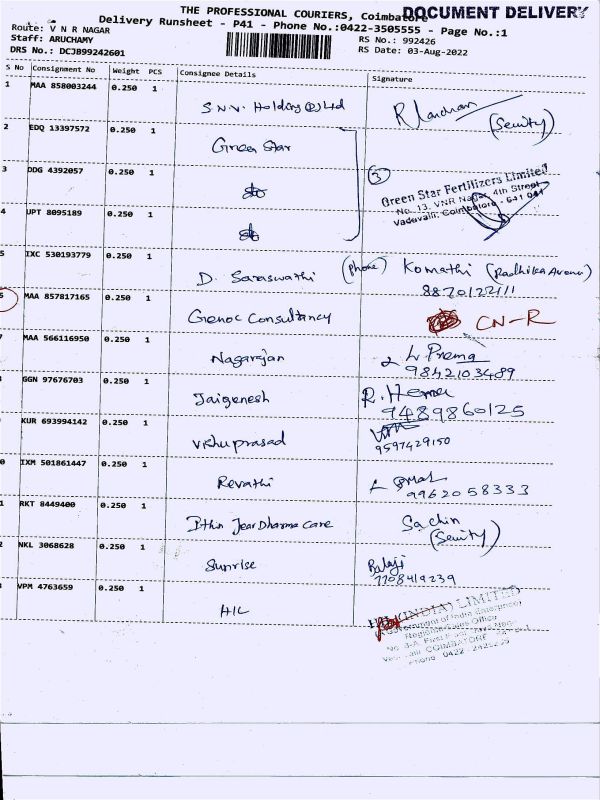 THE PROFESSIONAL COURIERS, Coimbatore
DOCUMENT DELIVERY
Delivery Runsheet - P41 - Phone No.:0422-3505555 - Page No.:1
Route: V N R NAGAR
Staff: ARUCHAMY
RS No.: 992426
DRS No.: DCJB99242601
RS Date: 03-Aug-2022
S No Consignment No Weight PCS Consignee Details Signature
1 MAA 858003244 0.250 1 S.N.V. Holding (P) Ltd (Seuity)
2 EDQ 13397572 0.250 1 Green Star
3 DDG 4392057 0.250 1 3
Green Star Fertilizers Limited
No. 13, VNR Nagar, 4th Street
Vadavalli, Coimbatore - 641 041
4 UPT 8095189 0.250 1
5 IXC 530193779 0.250 1 D. Saraswathi (Phone) Komathi (Radhika Avenu)
8870122111
6 MAA 857817165 0.250 1 Genoc Consultancy CN-R
MAA 566116950 0.250 1 Nagarajan Prema
9842103489
GGN 97676703 0.250 1 Jaiganesh R. Hema
9489860125
KUR 693994142 0.250 1 Vishuprasad
9597429150
0 IXM 501861447 0.250 1 Revathi
9962058333
1 RKT 8449400 0.250 1 Dharma Care Sachin
(Seuity)
2 NKL 3068628 0.250 1 Sunrise Balaji
7708419239
VPM 4763659 0.250 1 HIL
(INDIA) LIMITED
(A Government of India Enterprise)
Regional Sales Office
COIMBATORE
Phone 0422